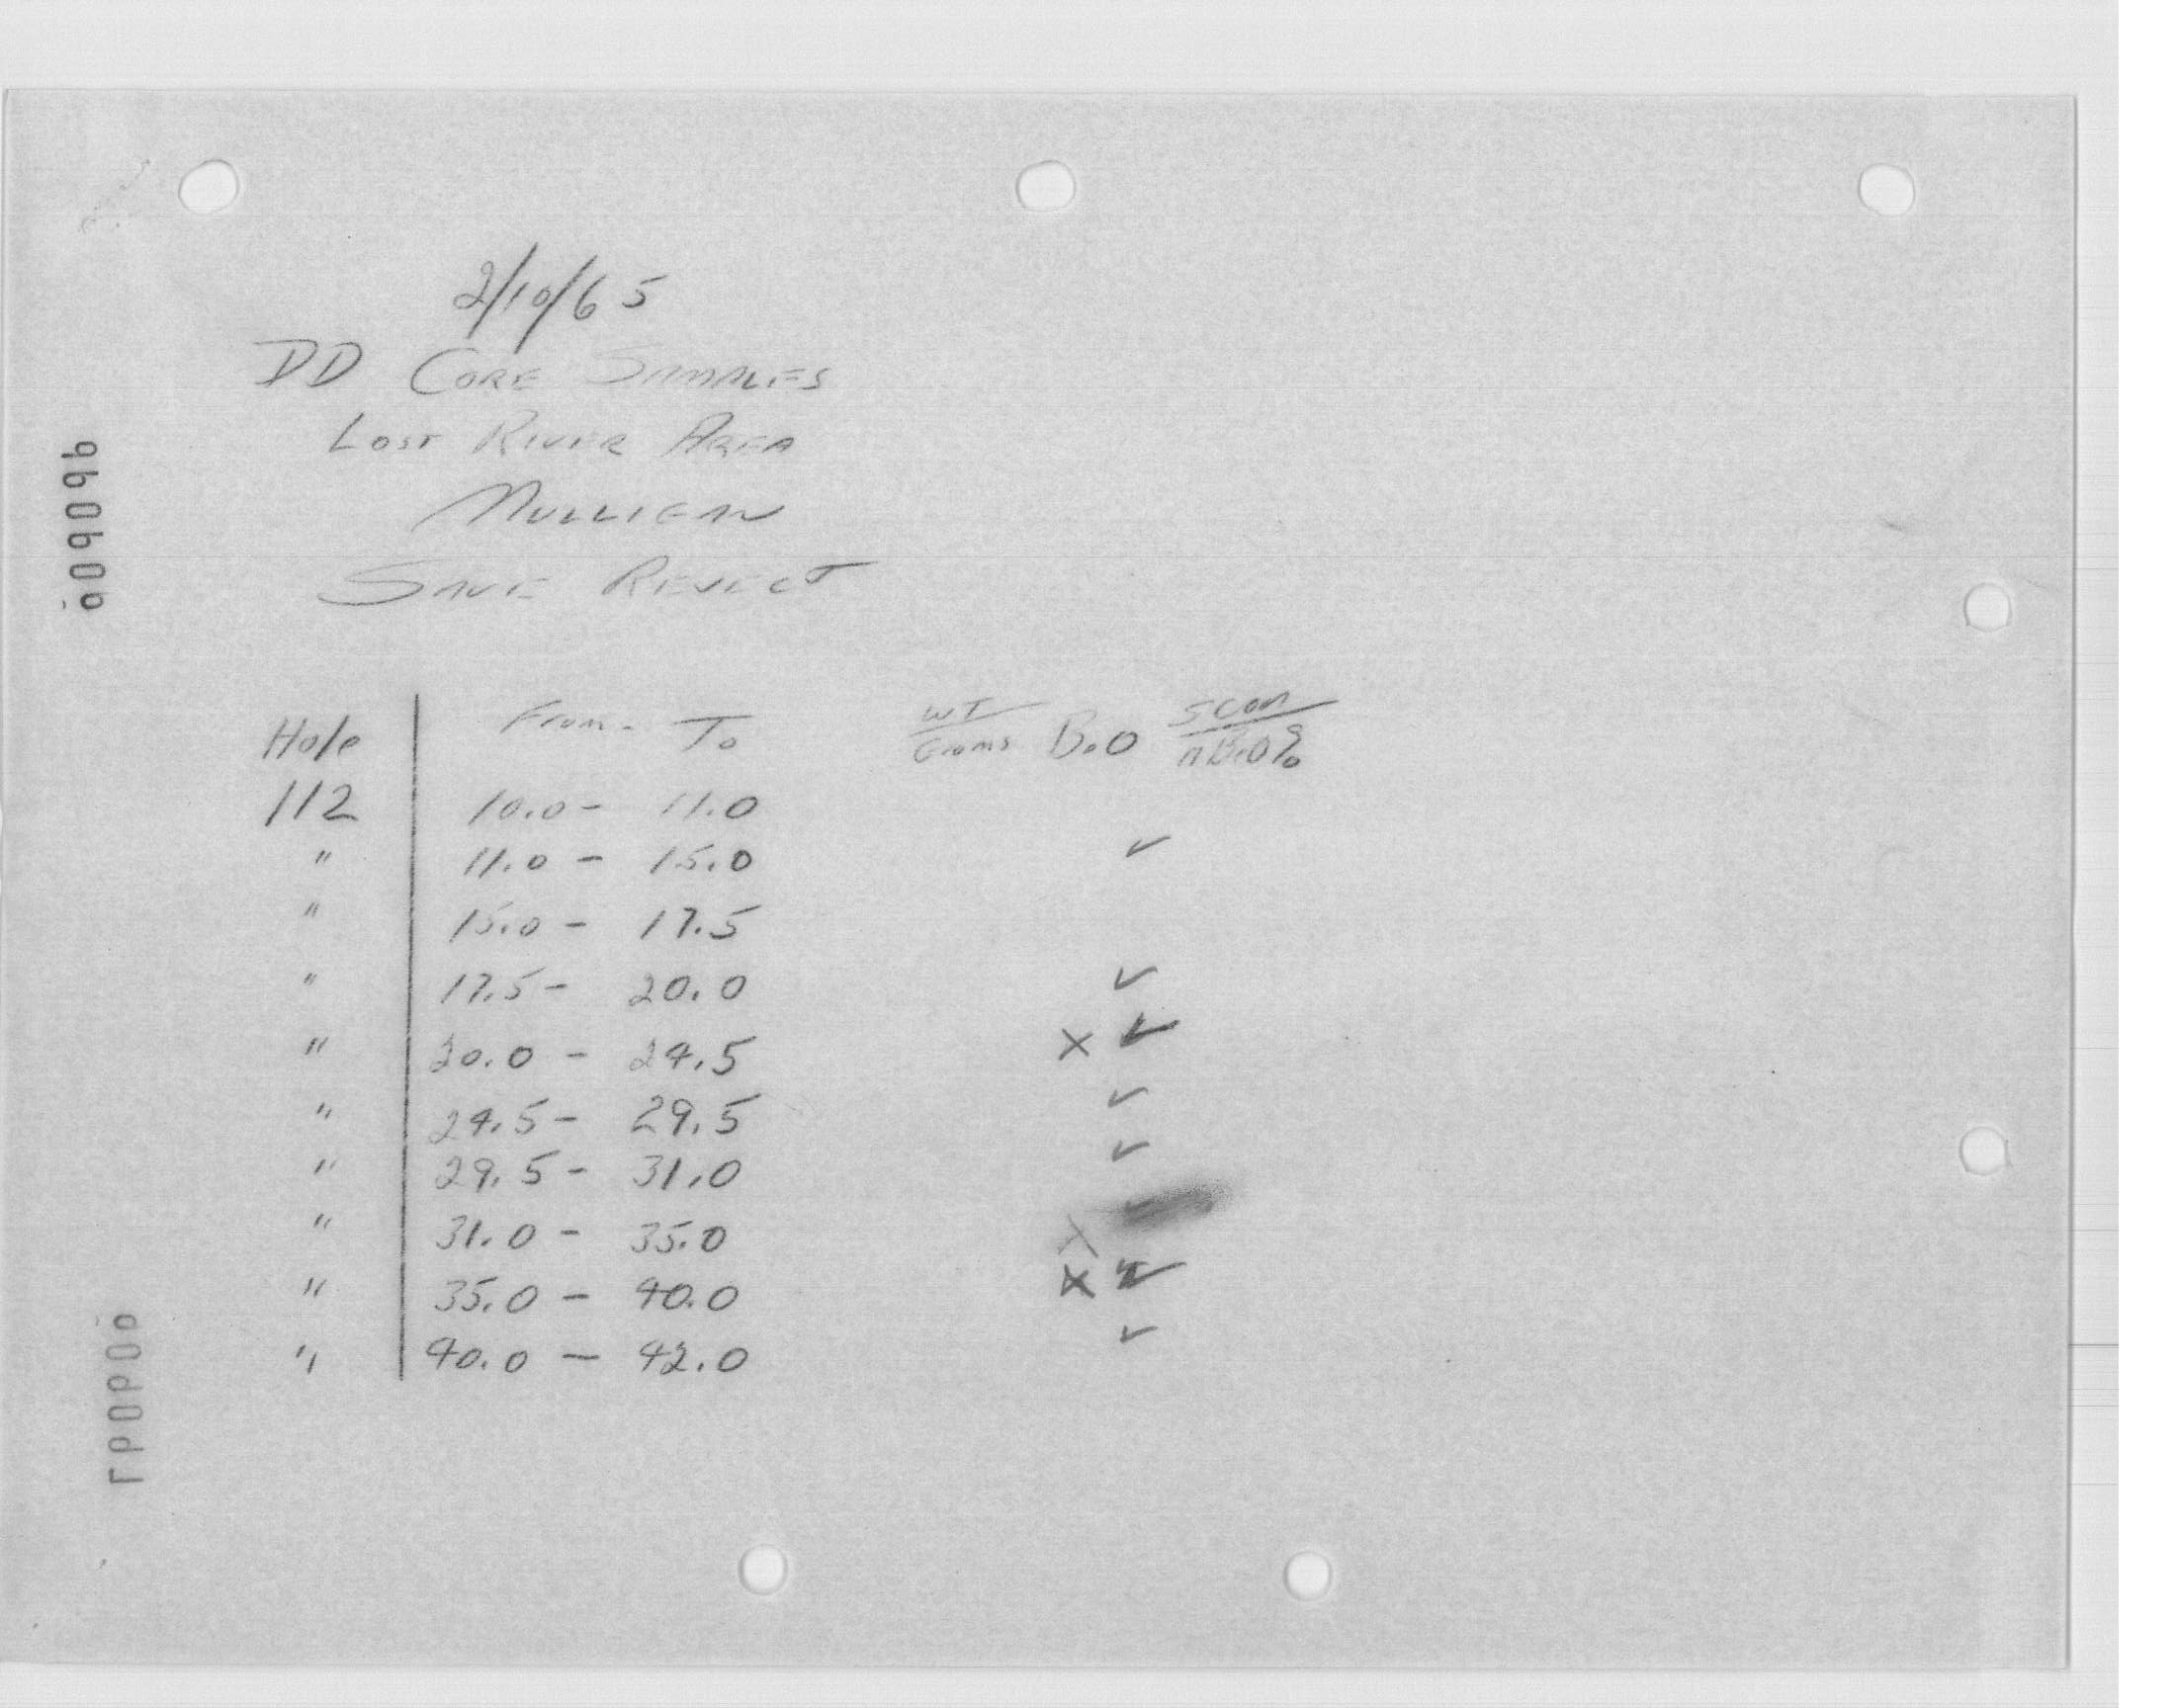 2/10/65
DD CORE SAMPLES
LOST RIVER AREA
MULLIGAN
SAVE REJECT
Hole From - To WT/Grams BeO Scan/n BeO%
112 10.0 - 11.0
" 11.0 - 15.0 ✓
" 15.0 - 17.5
" 17.5 - 20.0 ✓
" 20.0 - 24.5 X ✓
" 24.5 - 29.5 ✓
" 29.5 - 31.0 ✓
" 31.0 - 35.0 X
" 35.0 - 40.0 X ✓
" 40.0 - 42.0 ✓